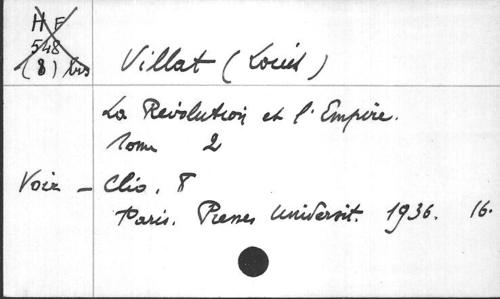 H F
548
(8) bis
Villat (Louis)
La Révolution et l'Empire.
Tome 2
Voir - Clio. 8
Paris. Presses Universit. 1936. 16.